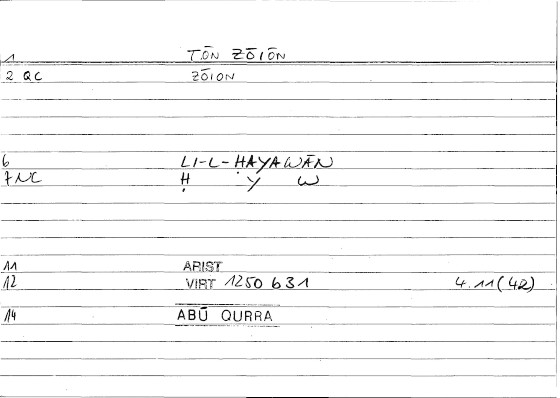 1 TŌN ZŌIŌN
2 QC ZŌION
6 LI-L-ḤAYAWĀN
7 NC Ḥ Y W
11 ARIST
12 VIRT 1250 631 4.11(42)
14 ABŪ QURRA